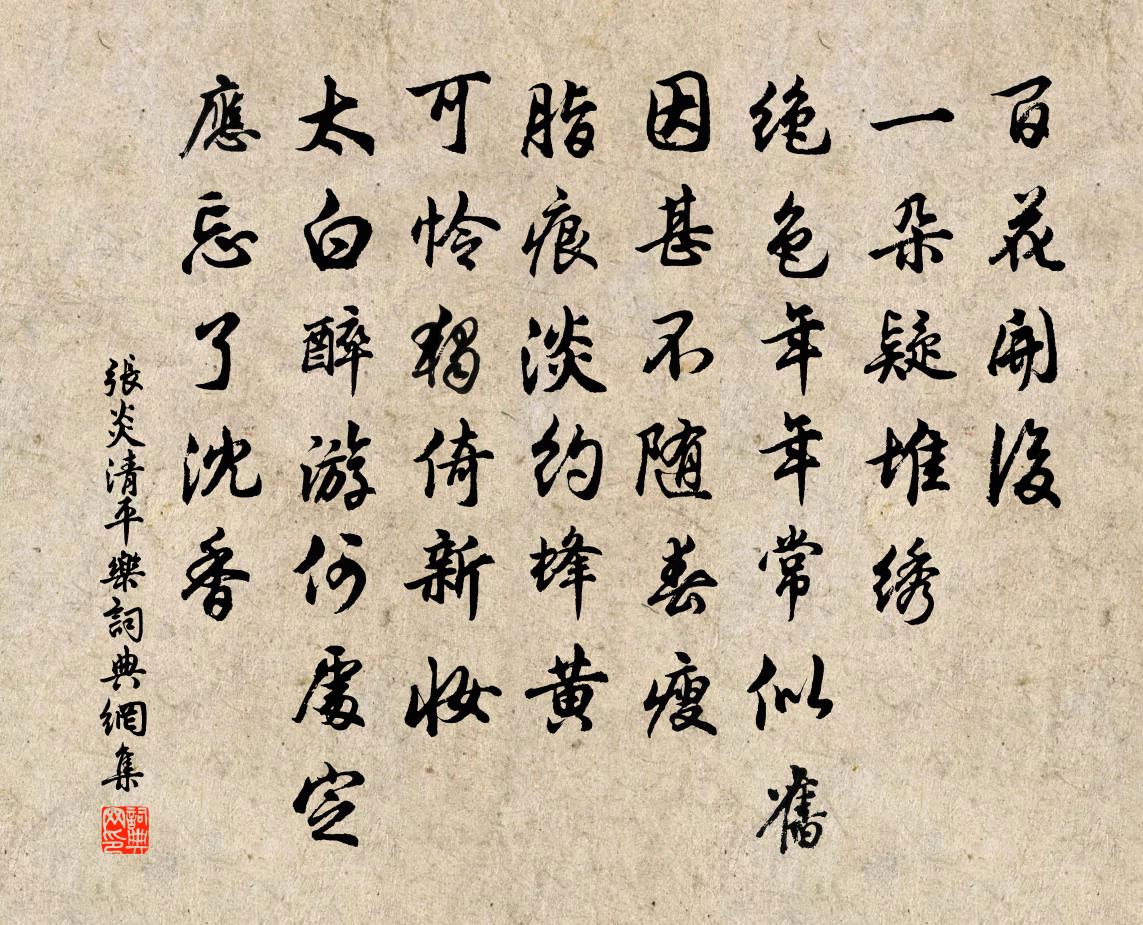 百花開後
一朵疑堆绣
绝色年年常似舊
因甚不随春瘦
脂痕淡约蜂黄
可怜獨倚新妆
太白醉游何處定
應忘了沈香
張炎清平樂詞典網集
詞典网印